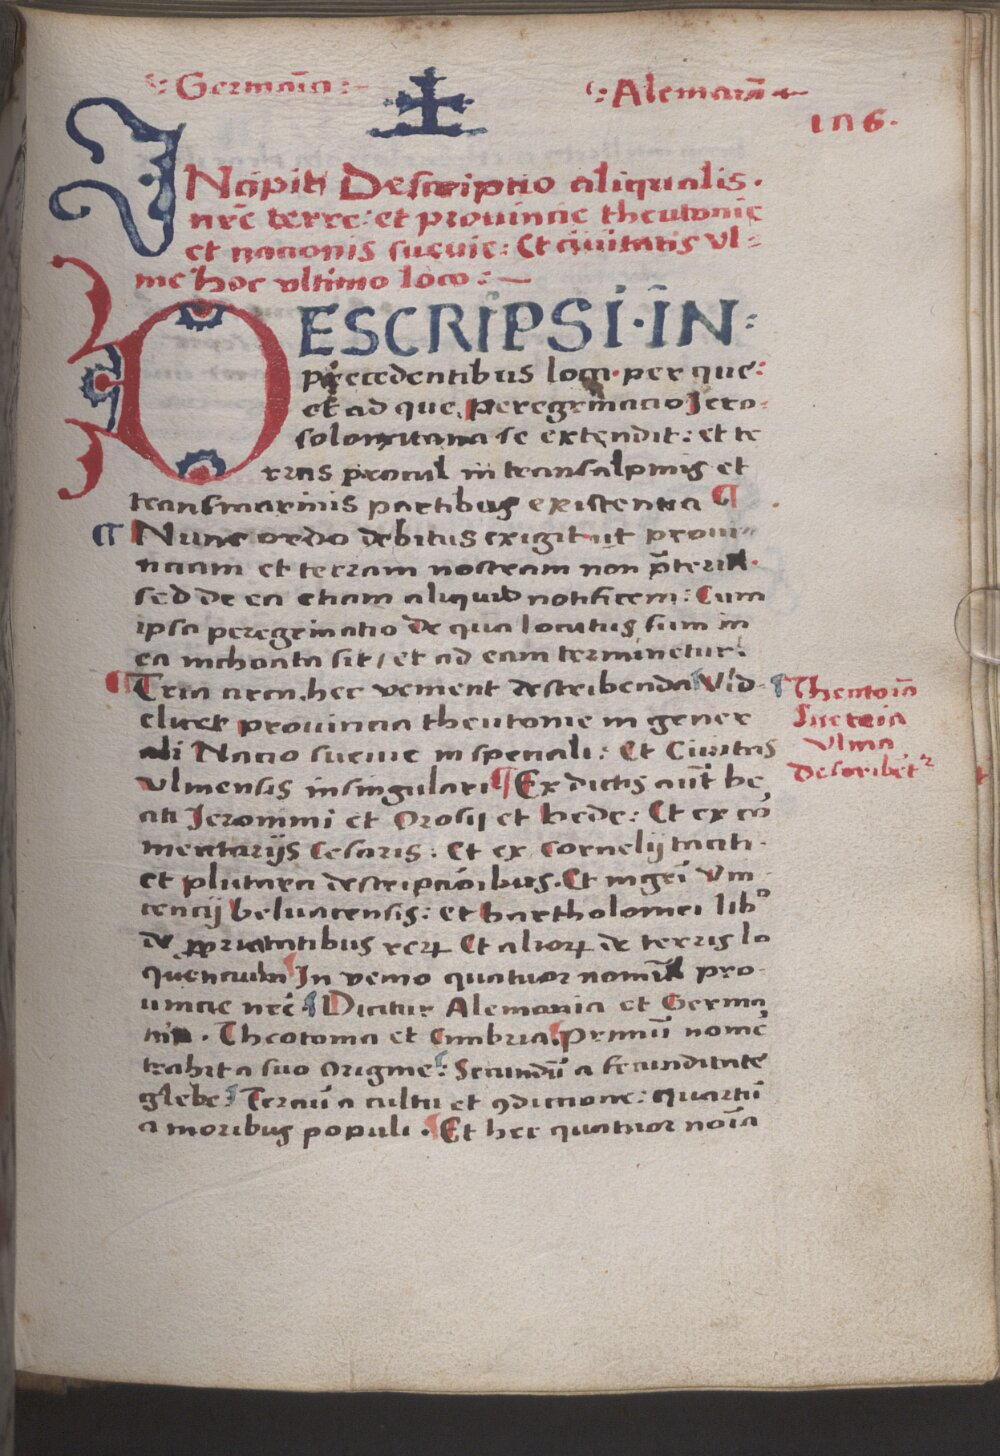 Germāia
Alemanīa
1n6.
INcipit Descriptio aliqualis.
nr̄e terre: et prouincie theutonie
et nacionis sueuie: Et ciuitatis vl-
me hoc ultimo loco:
DESCRIPSI·IN
precedentibus loca per que:
et ad que peregrinacio Jero-
solomitana se extendit: et te
rras procul in transalpinis et
transmarinis partibus existentia ¶
¶ Nunc ordo debitus exigit ut proui-
nciam et terram nostram non p̄terea.
sed de ea etiam aliquid notificem: Cum
ipsa peregrinatio de qua locutus sum in
ea inchoata sit / et ad eam terminetur:
¶ Tria aūt. hec veniunt describenda Vid-
elicet prouincia theutonie in gener
ali Nacio sueuie in speciali: Et Ciuitas
Vlmensis in singulari ¶ Ex dictis aūt be
ati Jeronimi et Orosij et bede: Et ex cō
mentarijs Cesaris: Et ex Cornelij taciti
et plutarci descripcōibus. Et mgr̄i Vin
cencij beluacensis: et bartholomei libᵒ
de ꝓprietatibus reꝝ Et alioꝝ de terris lo
quencium In venio quatuor nomīa pro
uincie nr̄e Dicitur Alemania et Germa
nia. Theotonia et Cimbria. Primū nomē
trahit a suo origine: Secundū a fecunditate
glebe: Terciū a cultu et ꝯdicione: Quartū
a moribus populi. Et hec quatuor noīa
Theutoīa
Sueuia
Vlma
describēt²